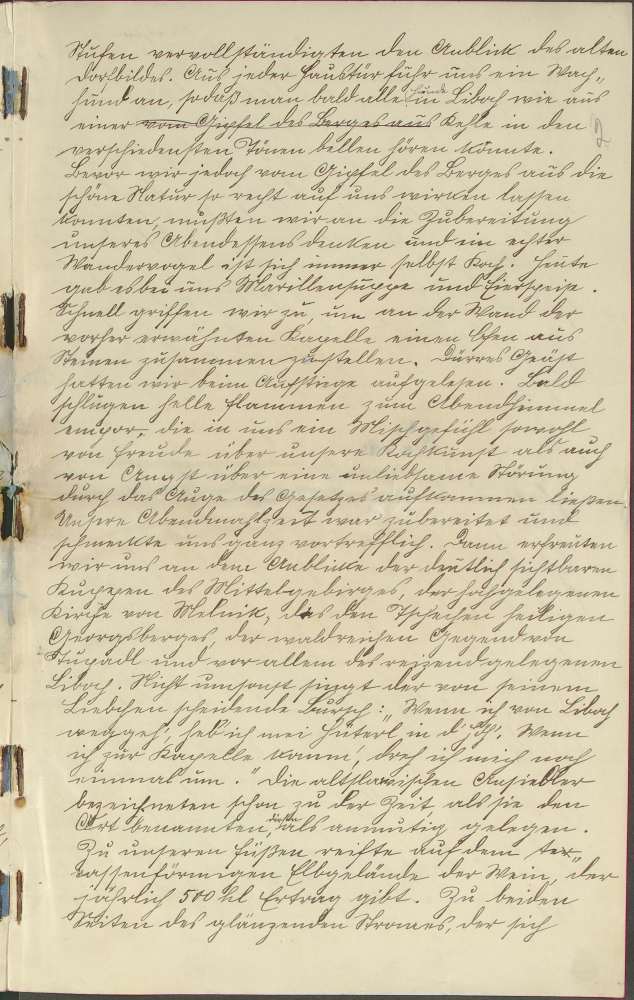 Stufen vervollständigten den Anblick des alten
Dorfbildes. Aus jeder Haustür fuhr uns ein Wach-
hund an, sodaß man bald alle Hunde in Liboch wie aus
einer vom Gipfel des Berges aus Kehle in den
verschiedensten Tönen bellen hören konnte.
Bevor wir jedoch vom Gipfel des Berges aus die
schöne Natur so recht auf uns wirken lassen
konnten, mußten wir an die Zubereitung
unseres Abendessens denken und ein echter
Wandervogel ist sich immer selbst Koch. Heute
gab es bei uns Marillensuppe und Eierspeise.
Schnell griffen wir zu, um an der Wand der
vorher erwähnten Kapelle einen Ofen aus
Steinen zusammenzustellen. Dürres Geäst
hatten wir beim Aufstiege aufgelesen. Bald
schlugen helle Flammen zum Abendhimmel
empor, die in uns ein Mischgefühl sowohl
von Freude über unsere Kochkunst als auch
von Angst über eine unliebsame Störung
durch das Auge des Gesetzes aufkommen ließen.
Unsere Abendmahlzeit war zubereitet und
schmeckte uns ganz vortrefflich. Dann erfreuten
wir uns an dem Anblicke der deutlich sichtbaren
Kuppen des Mittelgebirges, der hochgelegenen
Kirche von Melnik, des den Tschechen heiligen
Georgsberges, der waldreichen Gegend von
Tupadl und vor allem des reizend gelegenen
Liboch. Nicht umsonst singt der von seinem
Liebchen scheidende Bursch: "Wenn ich von Liboch
weggeh', heb ich mei Hüterl in d' Höh', Wenn
ich zur Kapelle komm', dreh ich mich noch
einmal um." Die altslawischen Ansiedler
bezeichneten schon zu der Zeit, als sie den
Ort benannten, diesen als anmutig gelegen.
Zu unseren Füßen reifte auf dem ter-
rassenförmigen Elbgelände der Wein, der
jährlich 500 hl Ertrag gibt. Zu beiden
Seiten des glänzenden Stromes, der sich
2